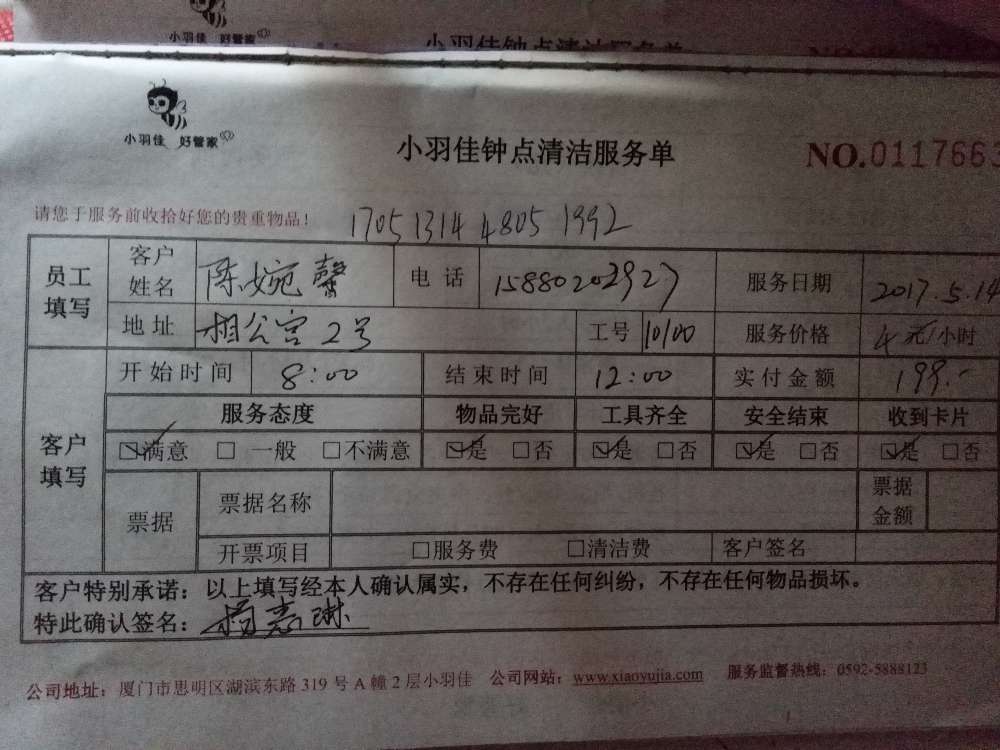 小羽佳 好管家
小羽佳钟点清洁服务单
NO.
小羽佳 好管家
小羽佳钟点清洁服务单
NO.0117663
请您于服务前收拾好您的贵重物品！
1705 1314 4805 1992
员工填写
客户姓名 陈婉馨 电话 15880203927 服务日期 2017.5.14
地址 相公宫2号 工号 10100 服务价格 4 元/小时
客户填写
开始时间 8:00 结束时间 12:00 实付金额 199.-
服务态度 物品完好 工具齐全 安全结束 收到卡片
☑满意 □ 一般 □不满意 ☑是 □否 ☑是 □否 ☑是 □否 ☑是 □否
票据 票据名称 票据金额
开票项目 □服务费 □清洁费 客户签名
客户特别承诺：以上填写经本人确认属实，不存在任何纠纷，不存在任何物品损坏。
特此确认签名：杨志琳
公司地址：厦门市思明区湖滨东路 319 号 A 幢 2 层小羽佳 公司网站：www.xiaoyujia.com 服务监督热线：0592-5888123